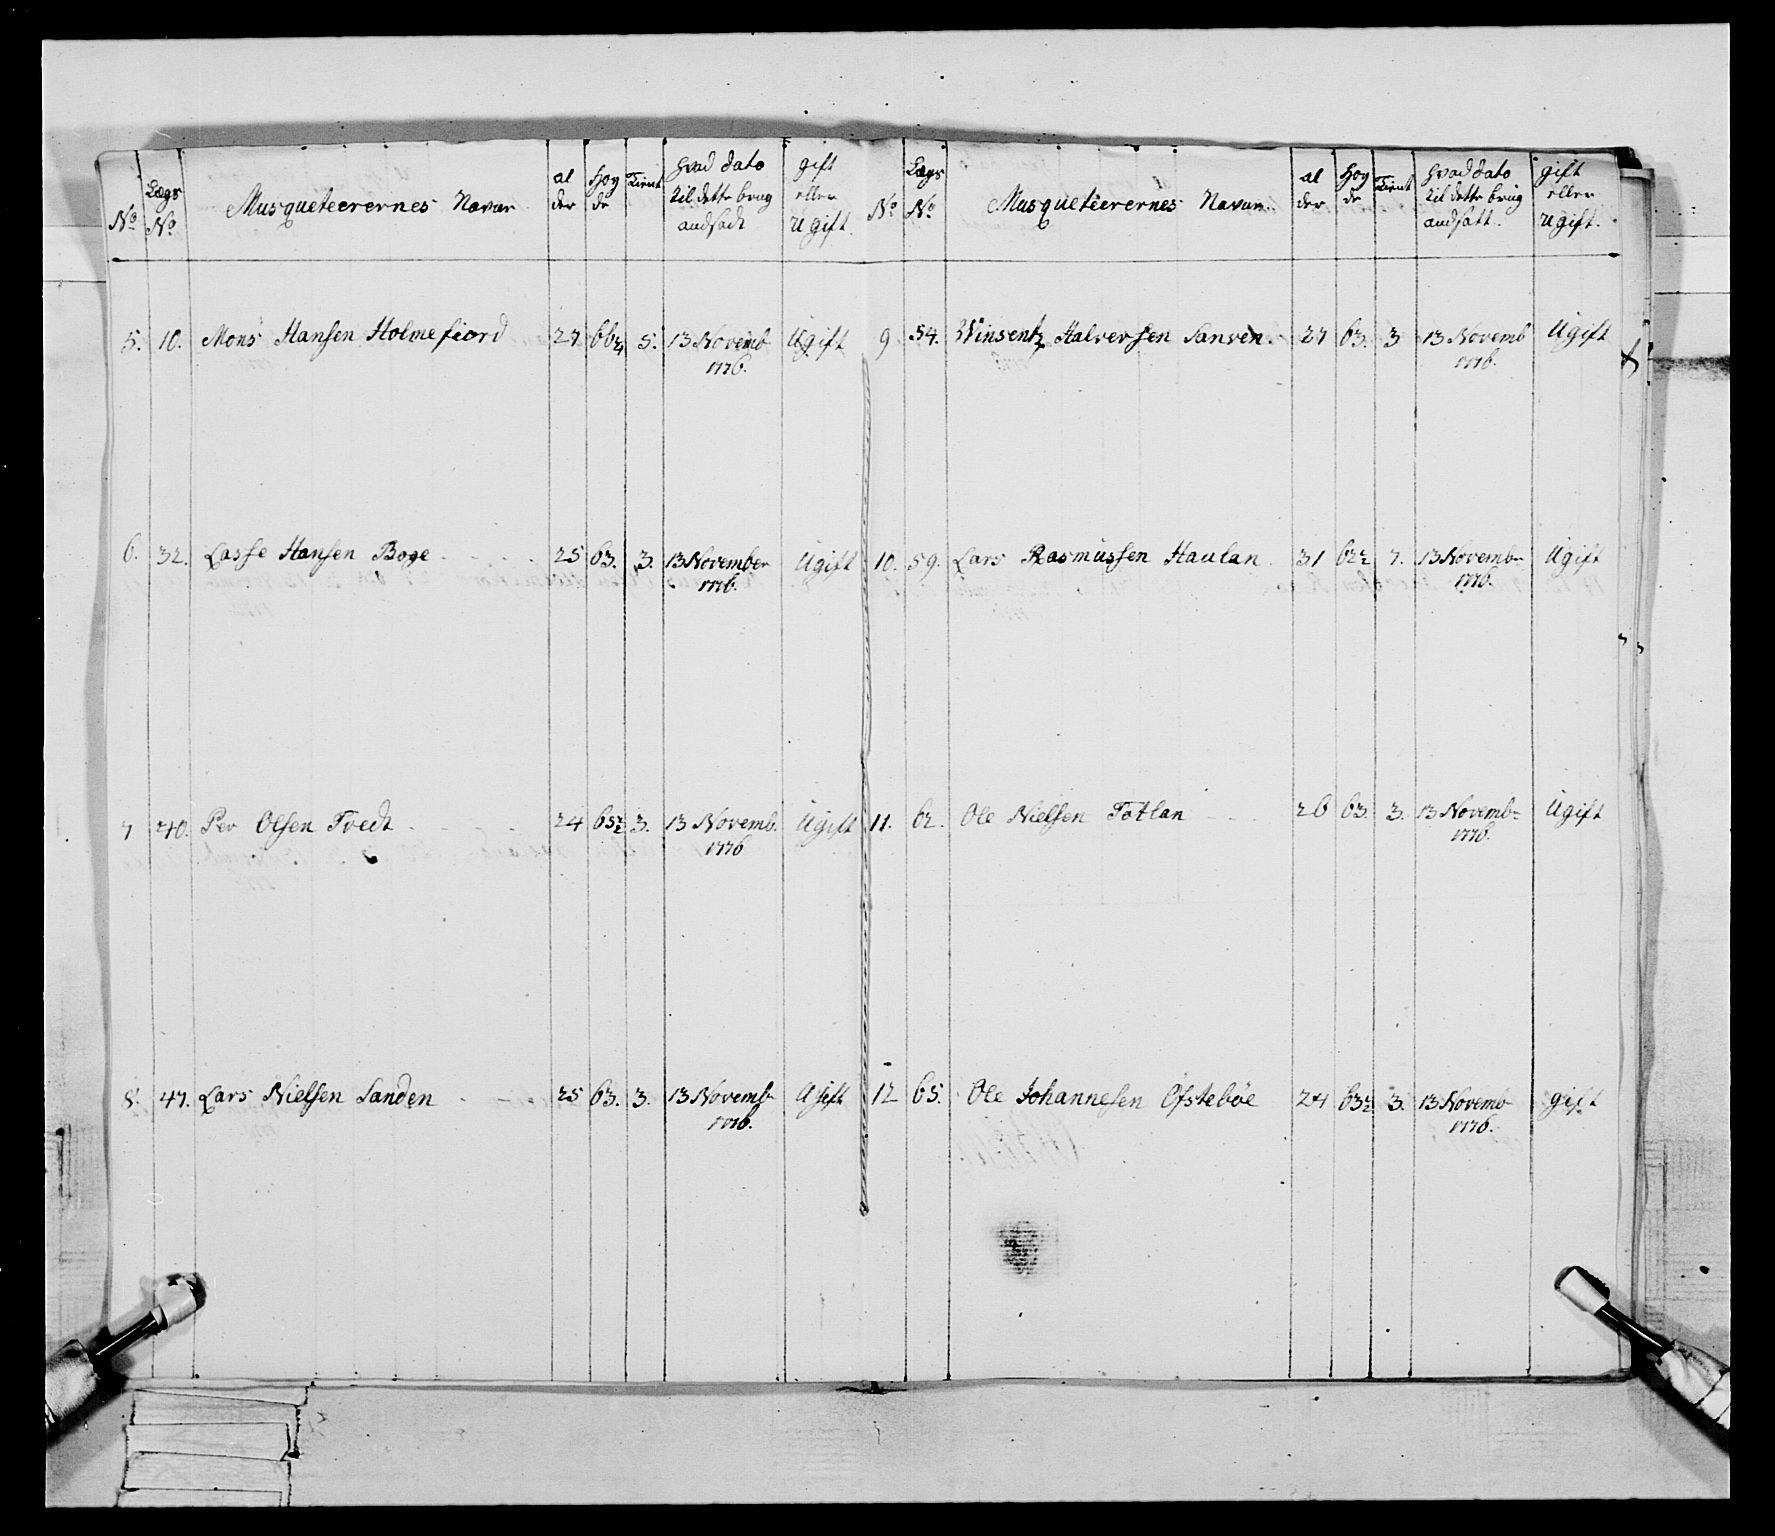 No Lægs No Musqueteerernes Navne al der Høy de Tient hvad dato til dette brug andsadt gift eller Ugift
5. 10. Mons Hansen Holmefiord 27 66 5. 13 Novemb 1776. Ugift
6. 32. Lasse Hansen Boge 25 63. 3. 13 November 1776. Ugift
7 40. Per Olsen Tvedt 24 65½ 3. 13 Novemb. 1776 Ugift
8. 47. Lars Nielsen Sanden 25 63. 3. 13 Novembr 1776. Ugift
No Lægs No Musqueteerernes Navne al der Høy de Tient hvad dato til dette brug andsatt. gift eller Ugift.
9 54. Winsentz Halversen Sanven 27 63. 3 13 Novemb 1776. Ugift
10. 59. Lars Rasmussen Haulan 31 62½ 7. 13 Novembr 1776. Ugift
11. 62. Ole Nielsen Totlan 26 63. 3. 13 Novembr 1776. Ugift
12 65. Ole Johannesen Öfstebøe 24 63½ 3. 13 Novemb 1776. gift